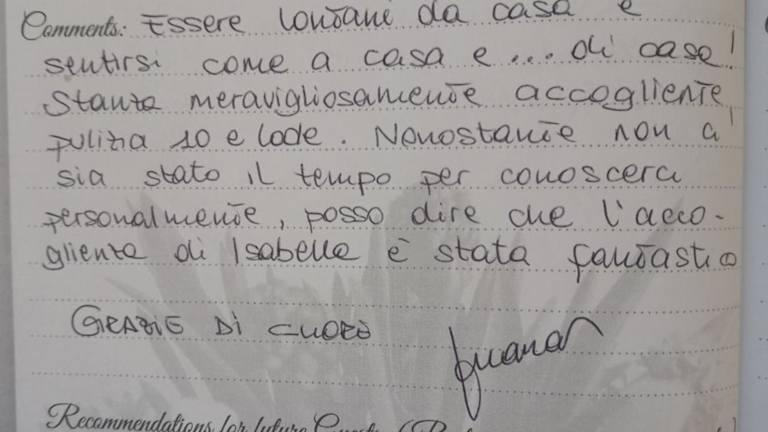 Comments: Essere lontani da casa e
sentirsi come a casa e .... di case!
Stanza meravigliosamente accogliente,
pulizia 10 e lode. Nonostante non ci
sia stato il tempo per conoscerci
personalmente, posso dire che l'acco-
glienza di Isabella è stata fantastica
GRAZIE DI CUORE
Recommendations for future Guests